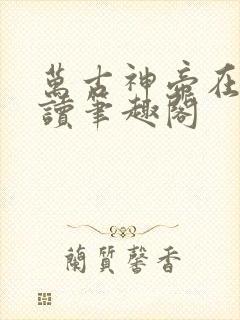 萬古神帝在
讀筆趣閣
蘭質馨香